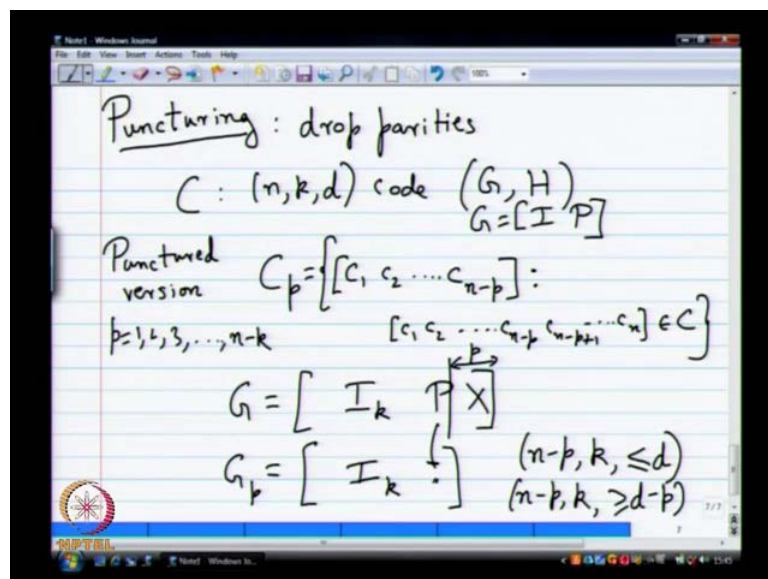 Note1 - Windows Journal
File Edit View Insert Actions Tools Help
100%
Puncturing : drop parities
C : (n, k, d) code (G, H)
G = [I P]
Punctured version
C_p = { [c_1 c_2 ... c_{n-p}] :
p=1, 2, 3, ..., n-k
[c_1 c_2 .... c_{n-p} c_{n-p+1} ... c_n] ∈ C }
p
G = [ I_k P | X ]
G_p = [ I_k ⋮ ] (n-p, k, ≤d)
(n-p, k, ≥d-p)
7/7
7
NPTEL
Note1 - Windows Jo...
15:45